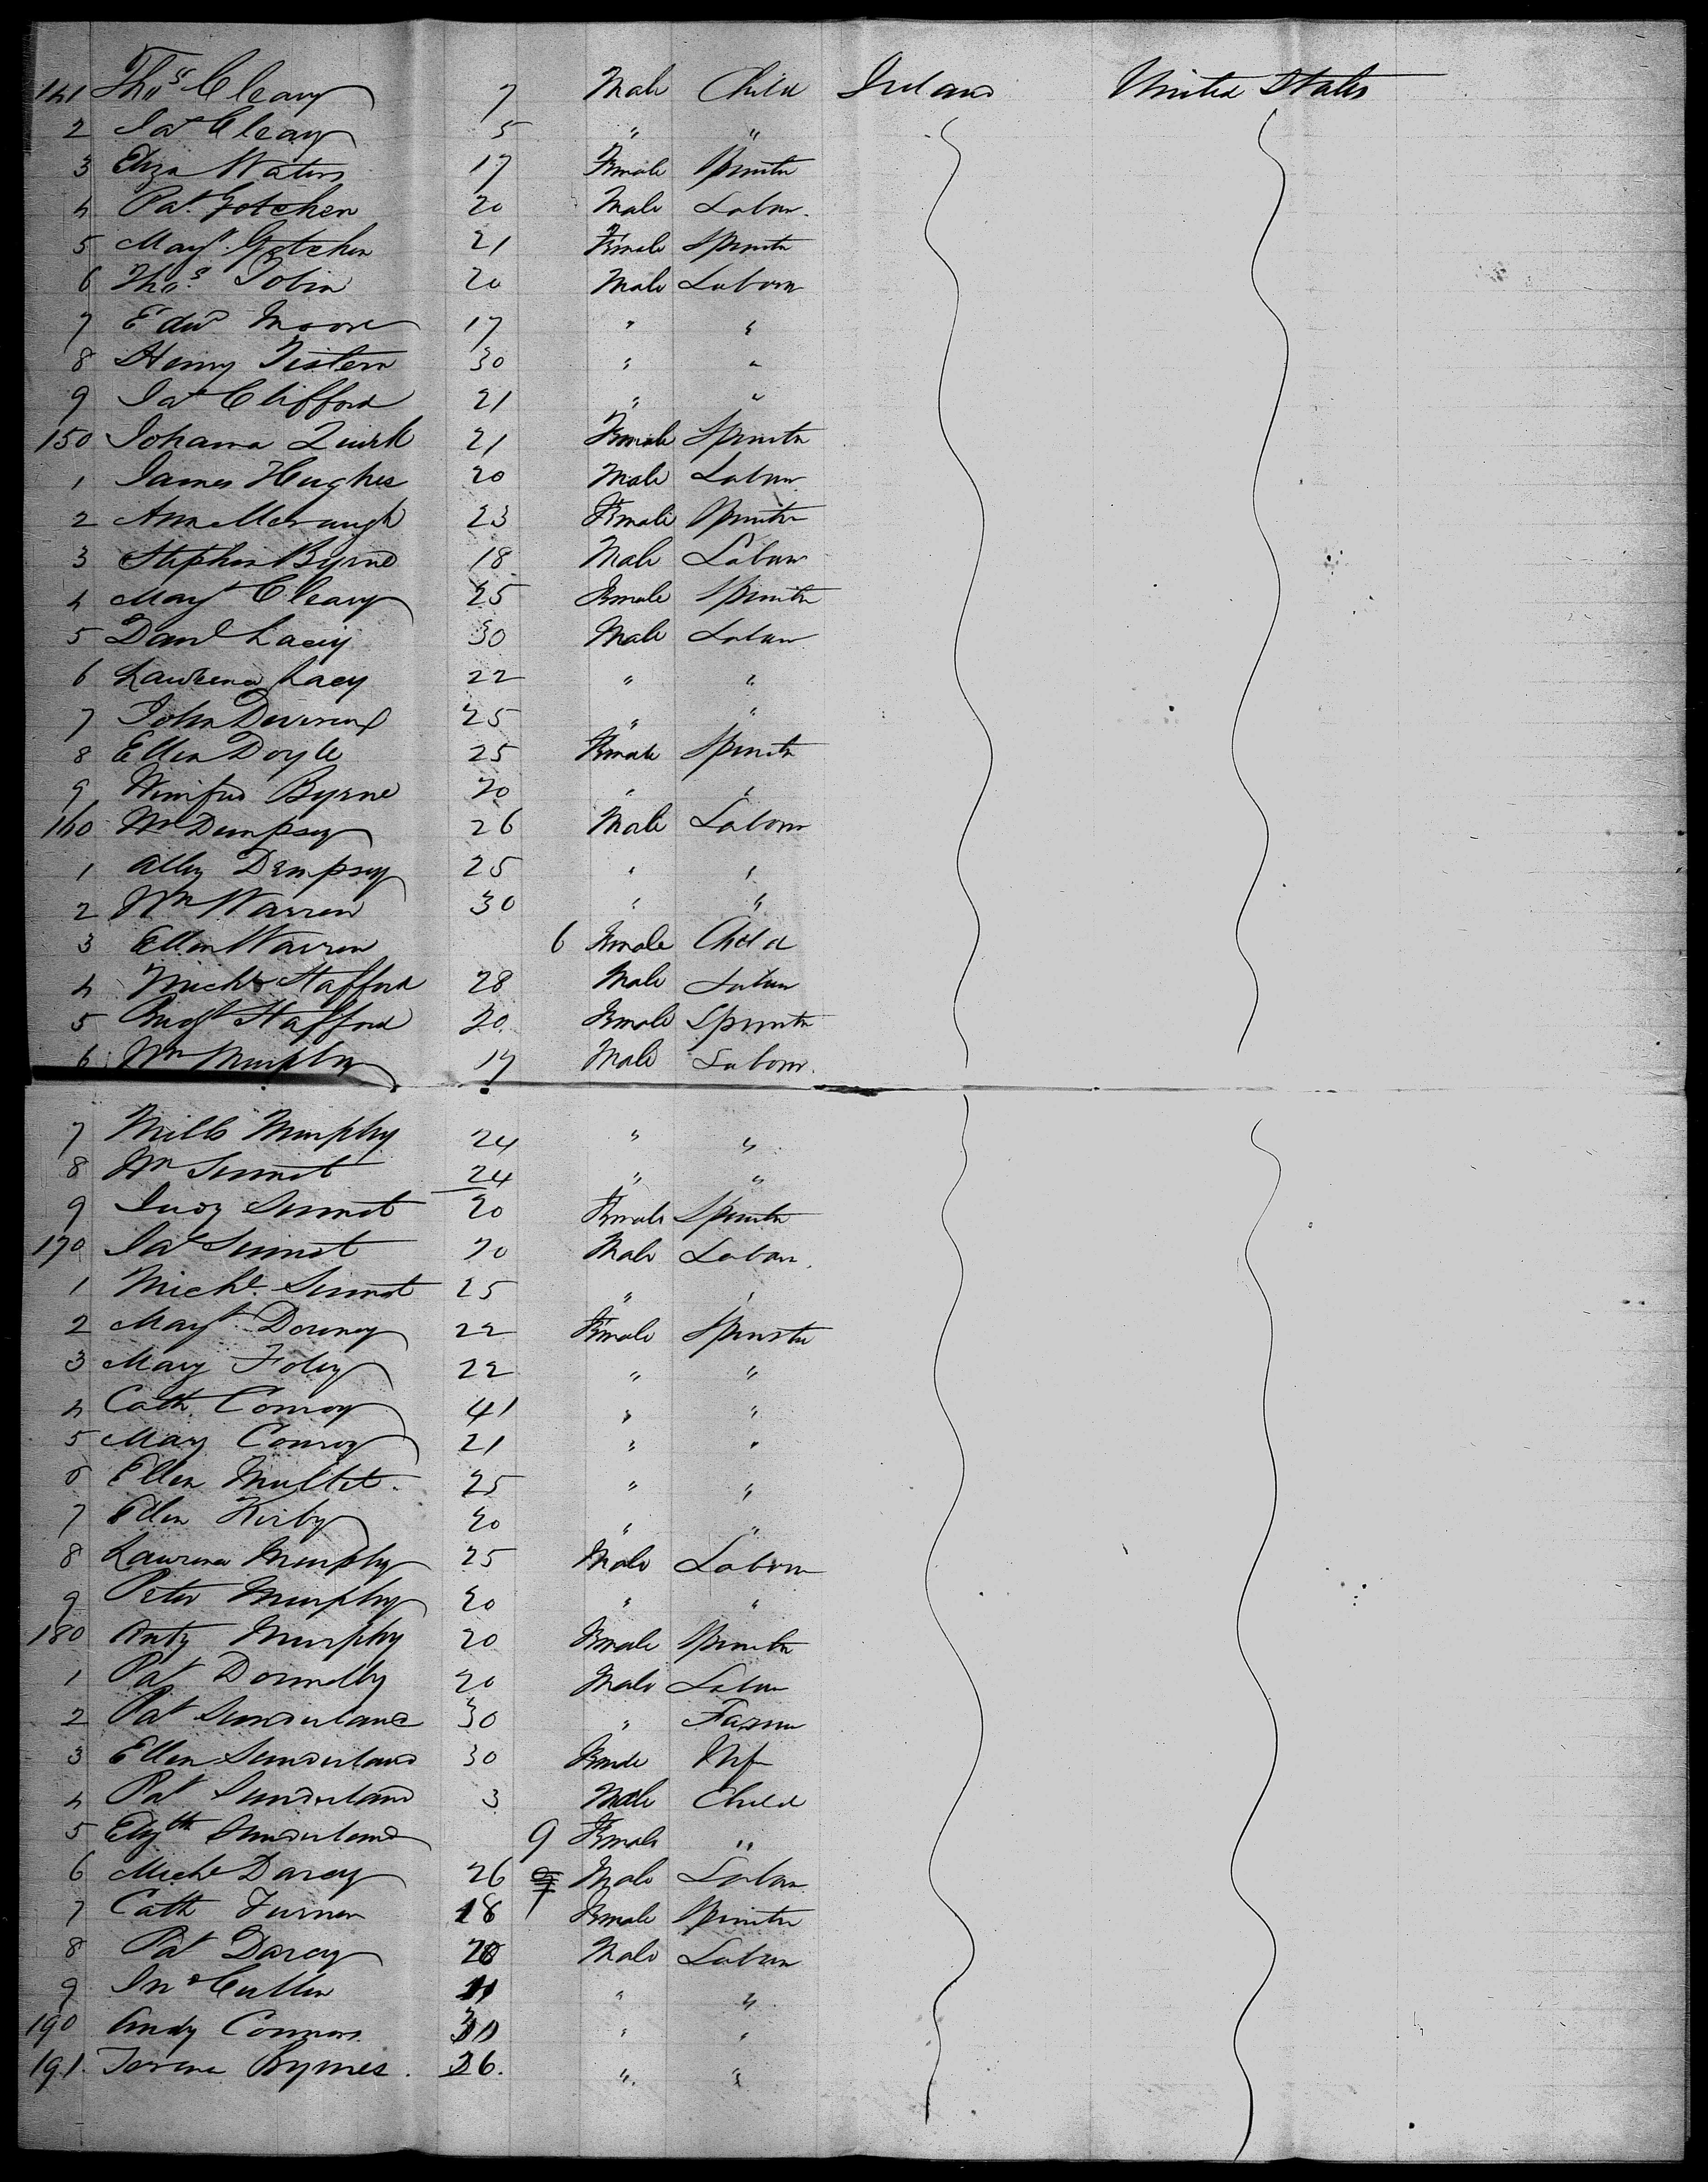 141 Thos Cleary 7 Male Child Ireland United States
2 Jas Cleary 5 " "
3 Eliza Waters 17 Female Spinster
4 Pat. Gotchen 20 Male Labor.
5 Margt. Gotchen 21 Female Spinster
6 Thos. Tobin 20 Male Laborer
7 Edwd Moore 17 " "
8 Henry 30 " "
9 Jas Clifford 21 " "
150 Johanna Quirk 21 Female Spinster
1 James Hughes 20 Male Laborer
2 Ann 23 Female Spinster
3 Stephen Byrne 18 Male Laborer
4 Margt Cleary 25 Female Spinster
5 Danl Lacey 30 Male Laborer
6 Lawrence Lacy 22 " "
7 John Devereux 25 " "
8 Ellen Doyle 25 Female Spinster
9 Winifred Byrne 20 " "
160 Wm Dempsey 26 Male Laborer
1 Alley Dempsey 25 " "
2 Wm Warren 30 " "
3 Ellen Warren 6 Female Child
4 Michl Stafford 28 Male Laborer
5 Bridgt Stafford 20. Female Spinster
6 Wm Murphy 17 Male Laborer.
7 Murphy 24 " "
8 Wm Sinnot 24 " "
9 Sinnot 20 Female Spinster
170 Jas Sinnot 20 Male Laborer.
1 Michl. Sinnot 25 " "
2 Margt. Downey 22 Female Spinster
3 Mary Foley 22 " "
4 Cath. Conroy 41 " "
5 Mary Conroy 21 " "
6 Ellen 25 " "
7 Ellen Kirby 20 " "
8 Lawrence Murphy 25 Male Laborer
9 Peter Murphy 20 " "
180 Murphy 20 Female Spinster
1 Pat Donnelly 20 Male Laborer
2 Pat Sunderland 30 " Farmer
3 Ellen Sunderland 30 Female Wife
4 Pat Sunderland 3 Male Child
5 Elizth Sunderland 9 Female "
6 Michl Darcy 26 Male Laborer
7 Cath 18 Female Spinster
8 Pat Darcy Male Laborer
9 Jno Cullen " "
190 Andy Connors " "
191. Byrnes. 26. " "